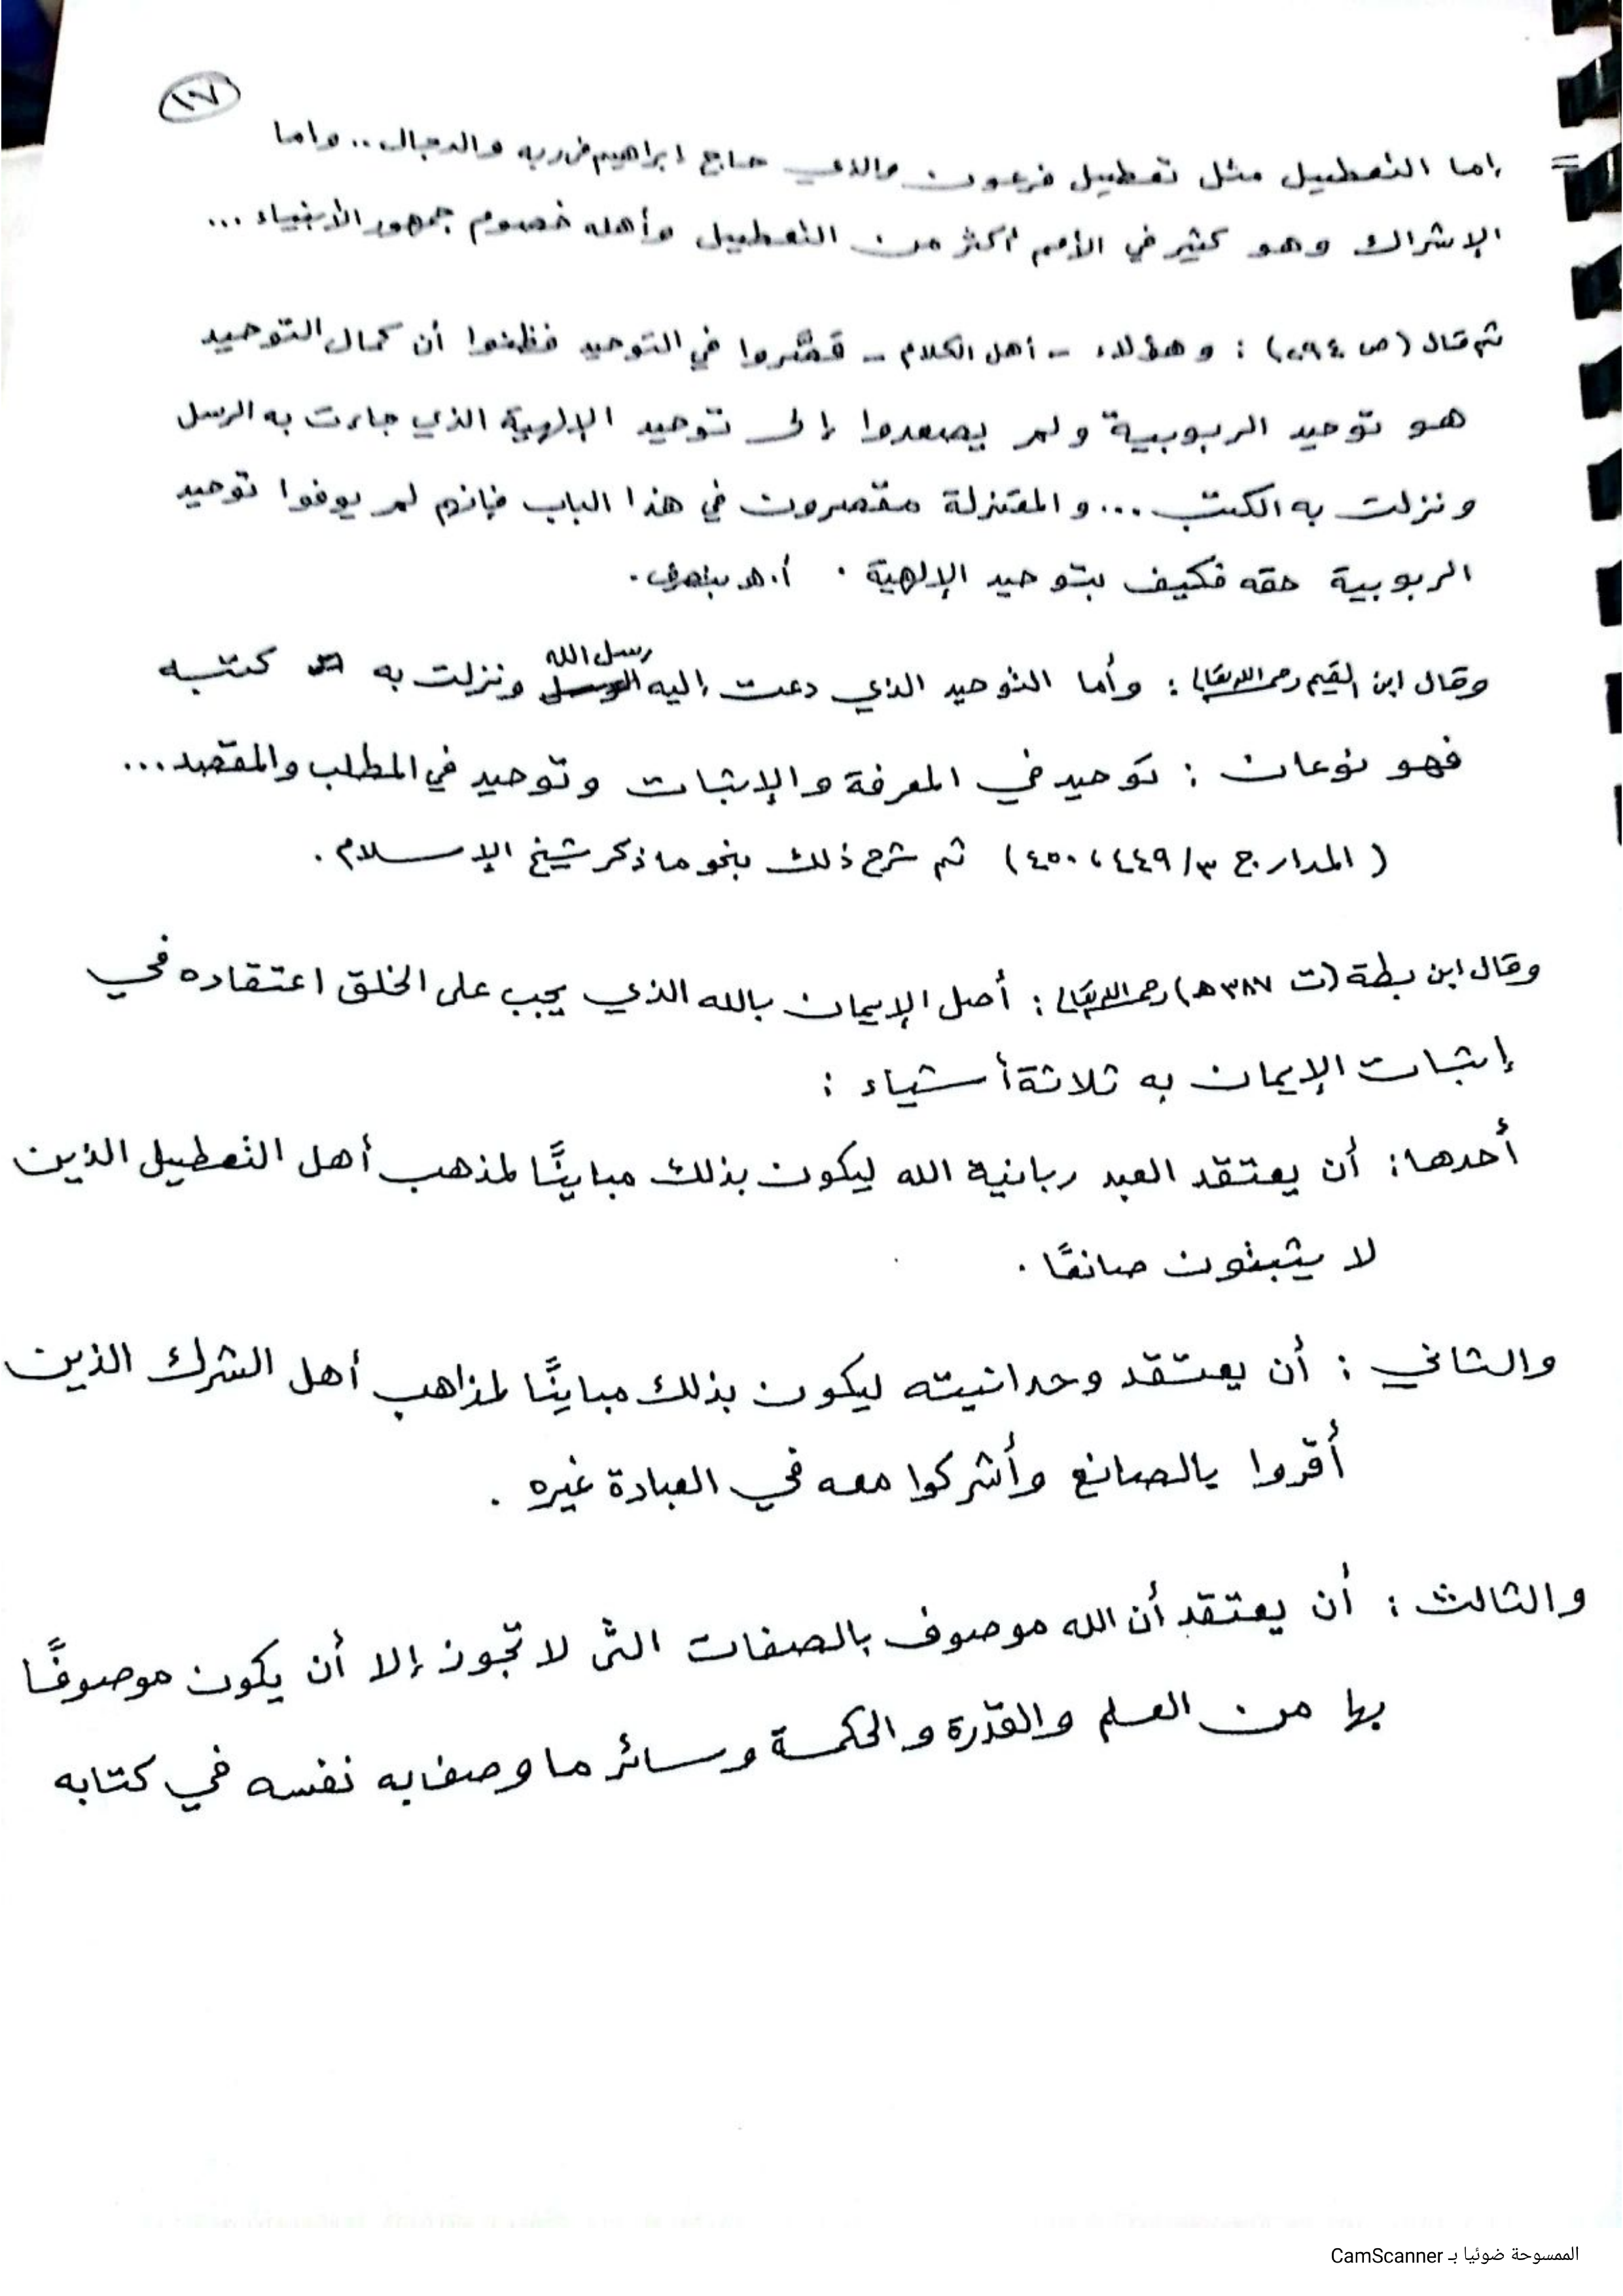 ١٧
= إما التعطيل مثل تعطيل فرعون والذي حاج ابراهيم في ربه والدجال.. واما
الإشراك وهو كثير في الأمم أكثر من التعطيل وأهله خصوم جمهور الأنبياء ...
ثم قال (ص ) : وهؤلاء - أهل الكلام - قصَّروا في التوحيد فظنوا أن كمال التوحيد
هو توحيد الربوبية ولم يصعدوا إلى توحيد الإلهية الذي جاءت به الرسل
ونزلت به الكتب ... والمعتزلة مقصرون في هذا الباب فإنهم لم يوفوا توحيد
الربوبية حقه فكيف بتوحيد الإلهية . أ.هـ بتصرف .
وقال ابن القيم رحمه الله تعالى : وأما التوحيد الذي دعت إليه رسل الله ونزلت به كتبه
فهو نوعان : توحيد في المعرفة والإثبات وتوحيد في المطلب والمقصد ...
( المدارج ٣/ ٤٤٩ ، ٤٥٠ ) ثم شرح ذلك بنحو ما ذكر شيخ الإسلام .
وقال ابن بطة (ت ٣٨٧ هـ) رحمه الله تعالى : أصل الإيمان بالله الذي يجب على الخلق اعتقاده في
إثبات الإيمان به ثلاثة أشياء :
أحدها : أن يعتقد العبد ربانية الله ليكون بذلك مباينًا لمذهب أهل التعطيل الذين
لا يثبتون صانعًا .
والثاني : أن يعتقد وحدانيته ليكون بذلك مباينًا لمذاهب أهل الشرك الذين
أقروا بالصانع وأشركوا معه في العبادة غيره .
والثالث : أن يعتقد أن الله موصوف بالصفات التي لا تجوز إلا أن يكون موصوفًا
بها من العلم والقدرة والحكمة وسائر ما وصف به نفسه في كتابه
الممسوحة ضوئيا بـ CamScanner